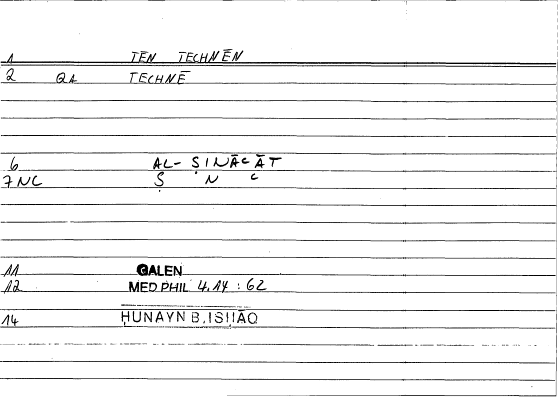 1 TĒN TECHNĒN
2 QA TECHNĒ
6 AL-ṢINĀCĀT
7 NC Ṣ N C
11 GALEN
12 MED PHIL 4.14 : 62
14 ḤUNAYN B.ISḤĀQ